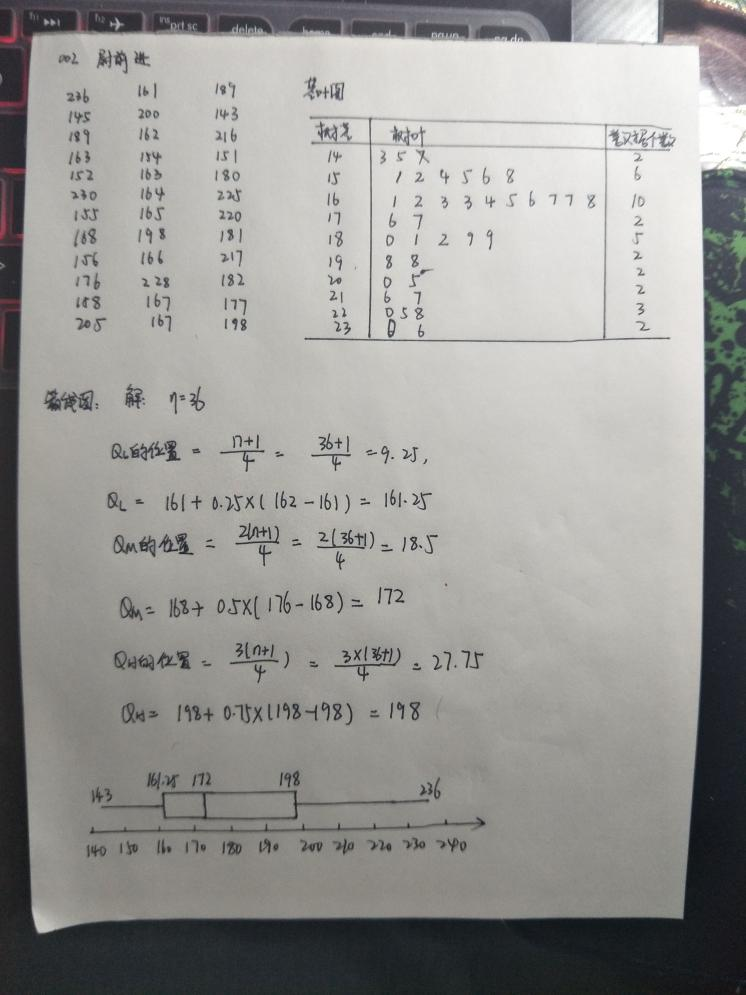 prt sc
delete
home
pg up
pg dn
002 尉前进
236 161 189
145 200 143
189 162 216
163 154 151
152 163 180
230 164 225
155 165 220
168 198 181
156 166 217
176 228 182
158 167 177
205 167 198
茎叶图
树茎 树叶 数据个数
14 3 5 2
15 1 2 4 5 6 8 6
16 1 2 3 3 4 5 6 7 7 8 10
17 6 7 2
18 0 1 2 9 9 5
19 8 8 2
20 0 5 2
21 6 7 2
22 0 5 8 3
23 0 6 2
箱线图: 解: n=36
QL的位置 = n+1/4 = 36+1/4 = 9.25,
QL = 161+0.25×(162-161) = 161.25
QM的位置 = 2(n+1)/4 = 2(36+1)/4 = 18.5
QM = 168+0.5×(176-168) = 172
QH的位置 = 3(n+1/4) = 3×(36+1)/4 = 27.75
QH = 198+0.75×(198-198) = 198
143 161.25 172 198 236
140 150 160 170 180 190 200 210 220 230 240